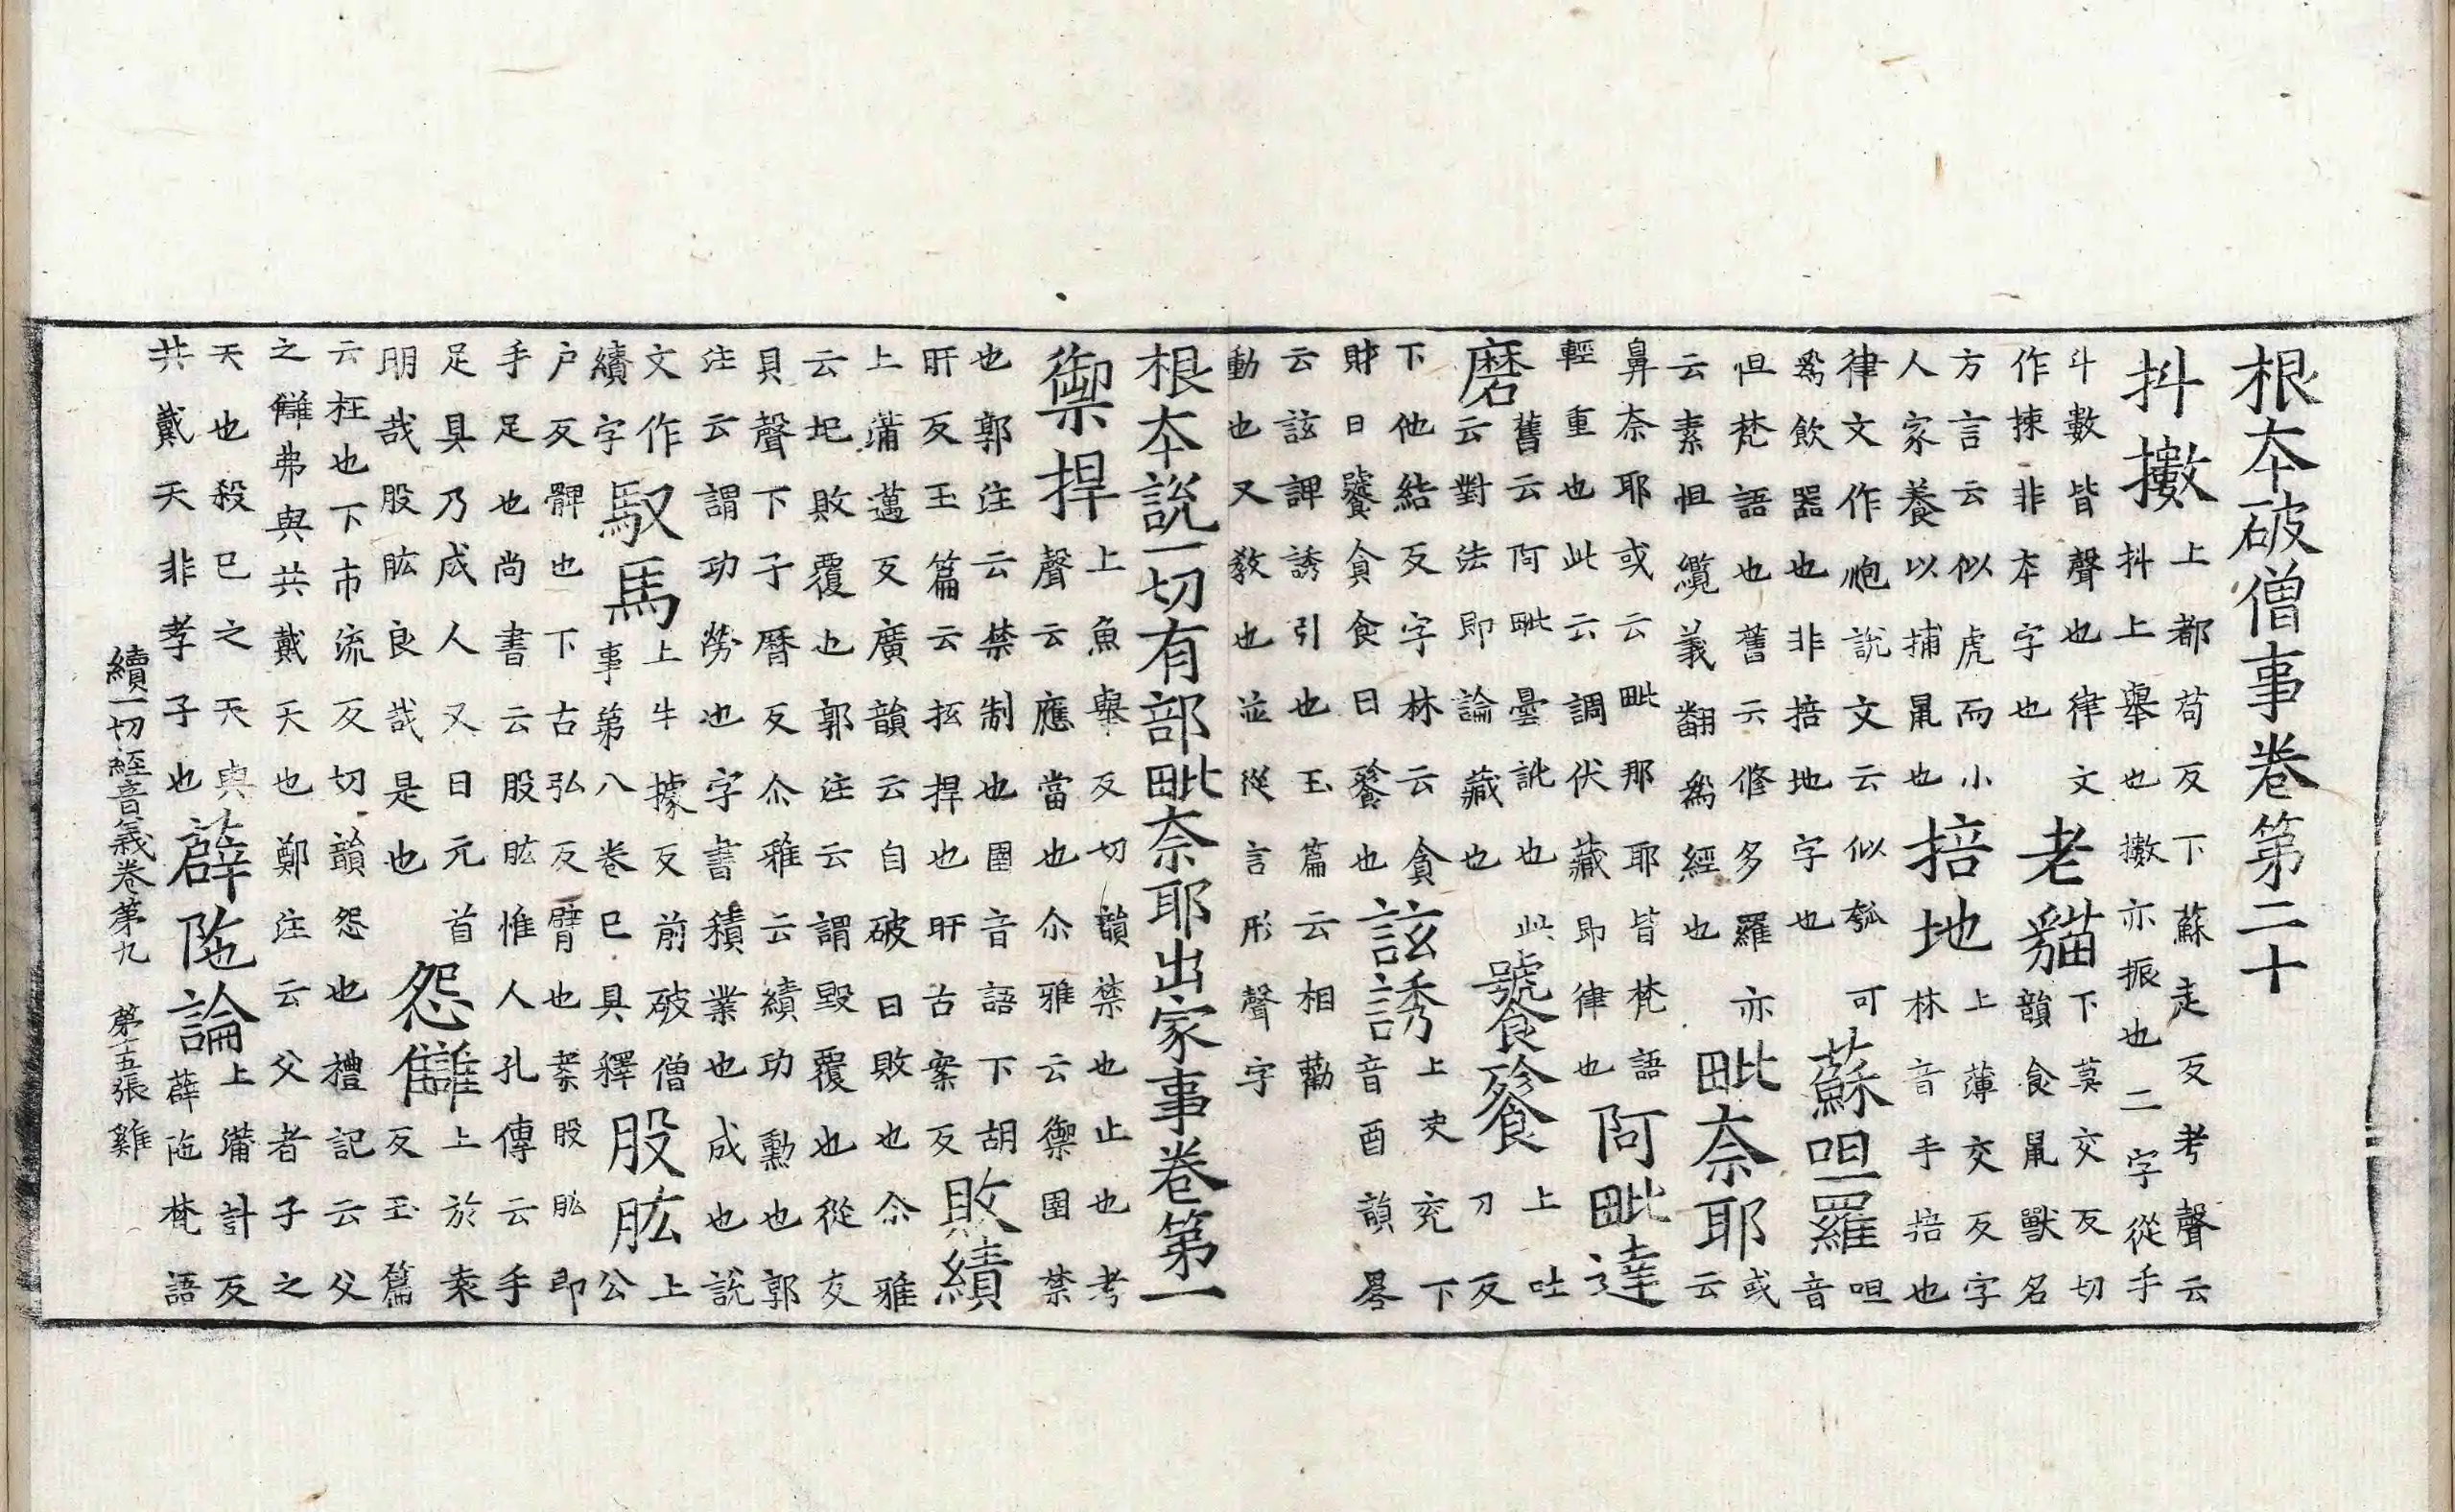 根本破僧事卷第二十
抖擻上都苟反下蘇走反考聲云抖上舉也擻亦振也二字從手
斗數皆聲也律文作揀非本字也老貓下莫交反切韻食鼠獸名
方言云似虎而小人家養以捕鼠也掊地上薄交反字林音手掊也
律文作炮說文云似瓠可爲飲器也非掊地字也蘇呾羅呾音
怛梵語也舊云修多羅亦云素怛纜義翻爲經也毗奈耶或云
鼻奈耶或云毗那耶皆梵語輕重也此云調伏藏即律也阿毗達
磨舊云阿毗曇訛也此云對法即論藏也饕餮上吐刀反
下他結反字林云貪財曰饕貪食曰餮也詃誘上兖下音酉韻畧
云詃誘引也玉篇云相勸動也又教也並從言形聲字
根本說一切有部毗奈耶出家事卷第一
禦捍上魚舉反切韻禁也止也考聲云應當也尒雅云禦圉禁
也郭注云禁制也圉音語下胡旰反玉篇云抎捍也旰古案反敗績
上蒲邁反廣韻云自破曰敗也尒雅云圮敗覆也郭注云謂毀覆也從攴
貝聲下子曆反尒雅云績功勳也郭注云謂功勞也字書積業也成也說
文作績字馭馬上牛據反前破僧事第八卷已具釋股肱上公
户反髀也下古弘反臂也案股肱即手足也尚書云股肱惟人孔傳云手
足具乃成人又曰元首明哉股肱良哉是也怨讎上於袁反玉篇
云枉也下市流反切韻怨也禮記云父之讎弗與共戴天也鄭注云父者子之
天也殺已之天與共戴天非孝子也薜陁論上蒲計反薜陁梵語
續一切經音義卷第九 第十五張 雞